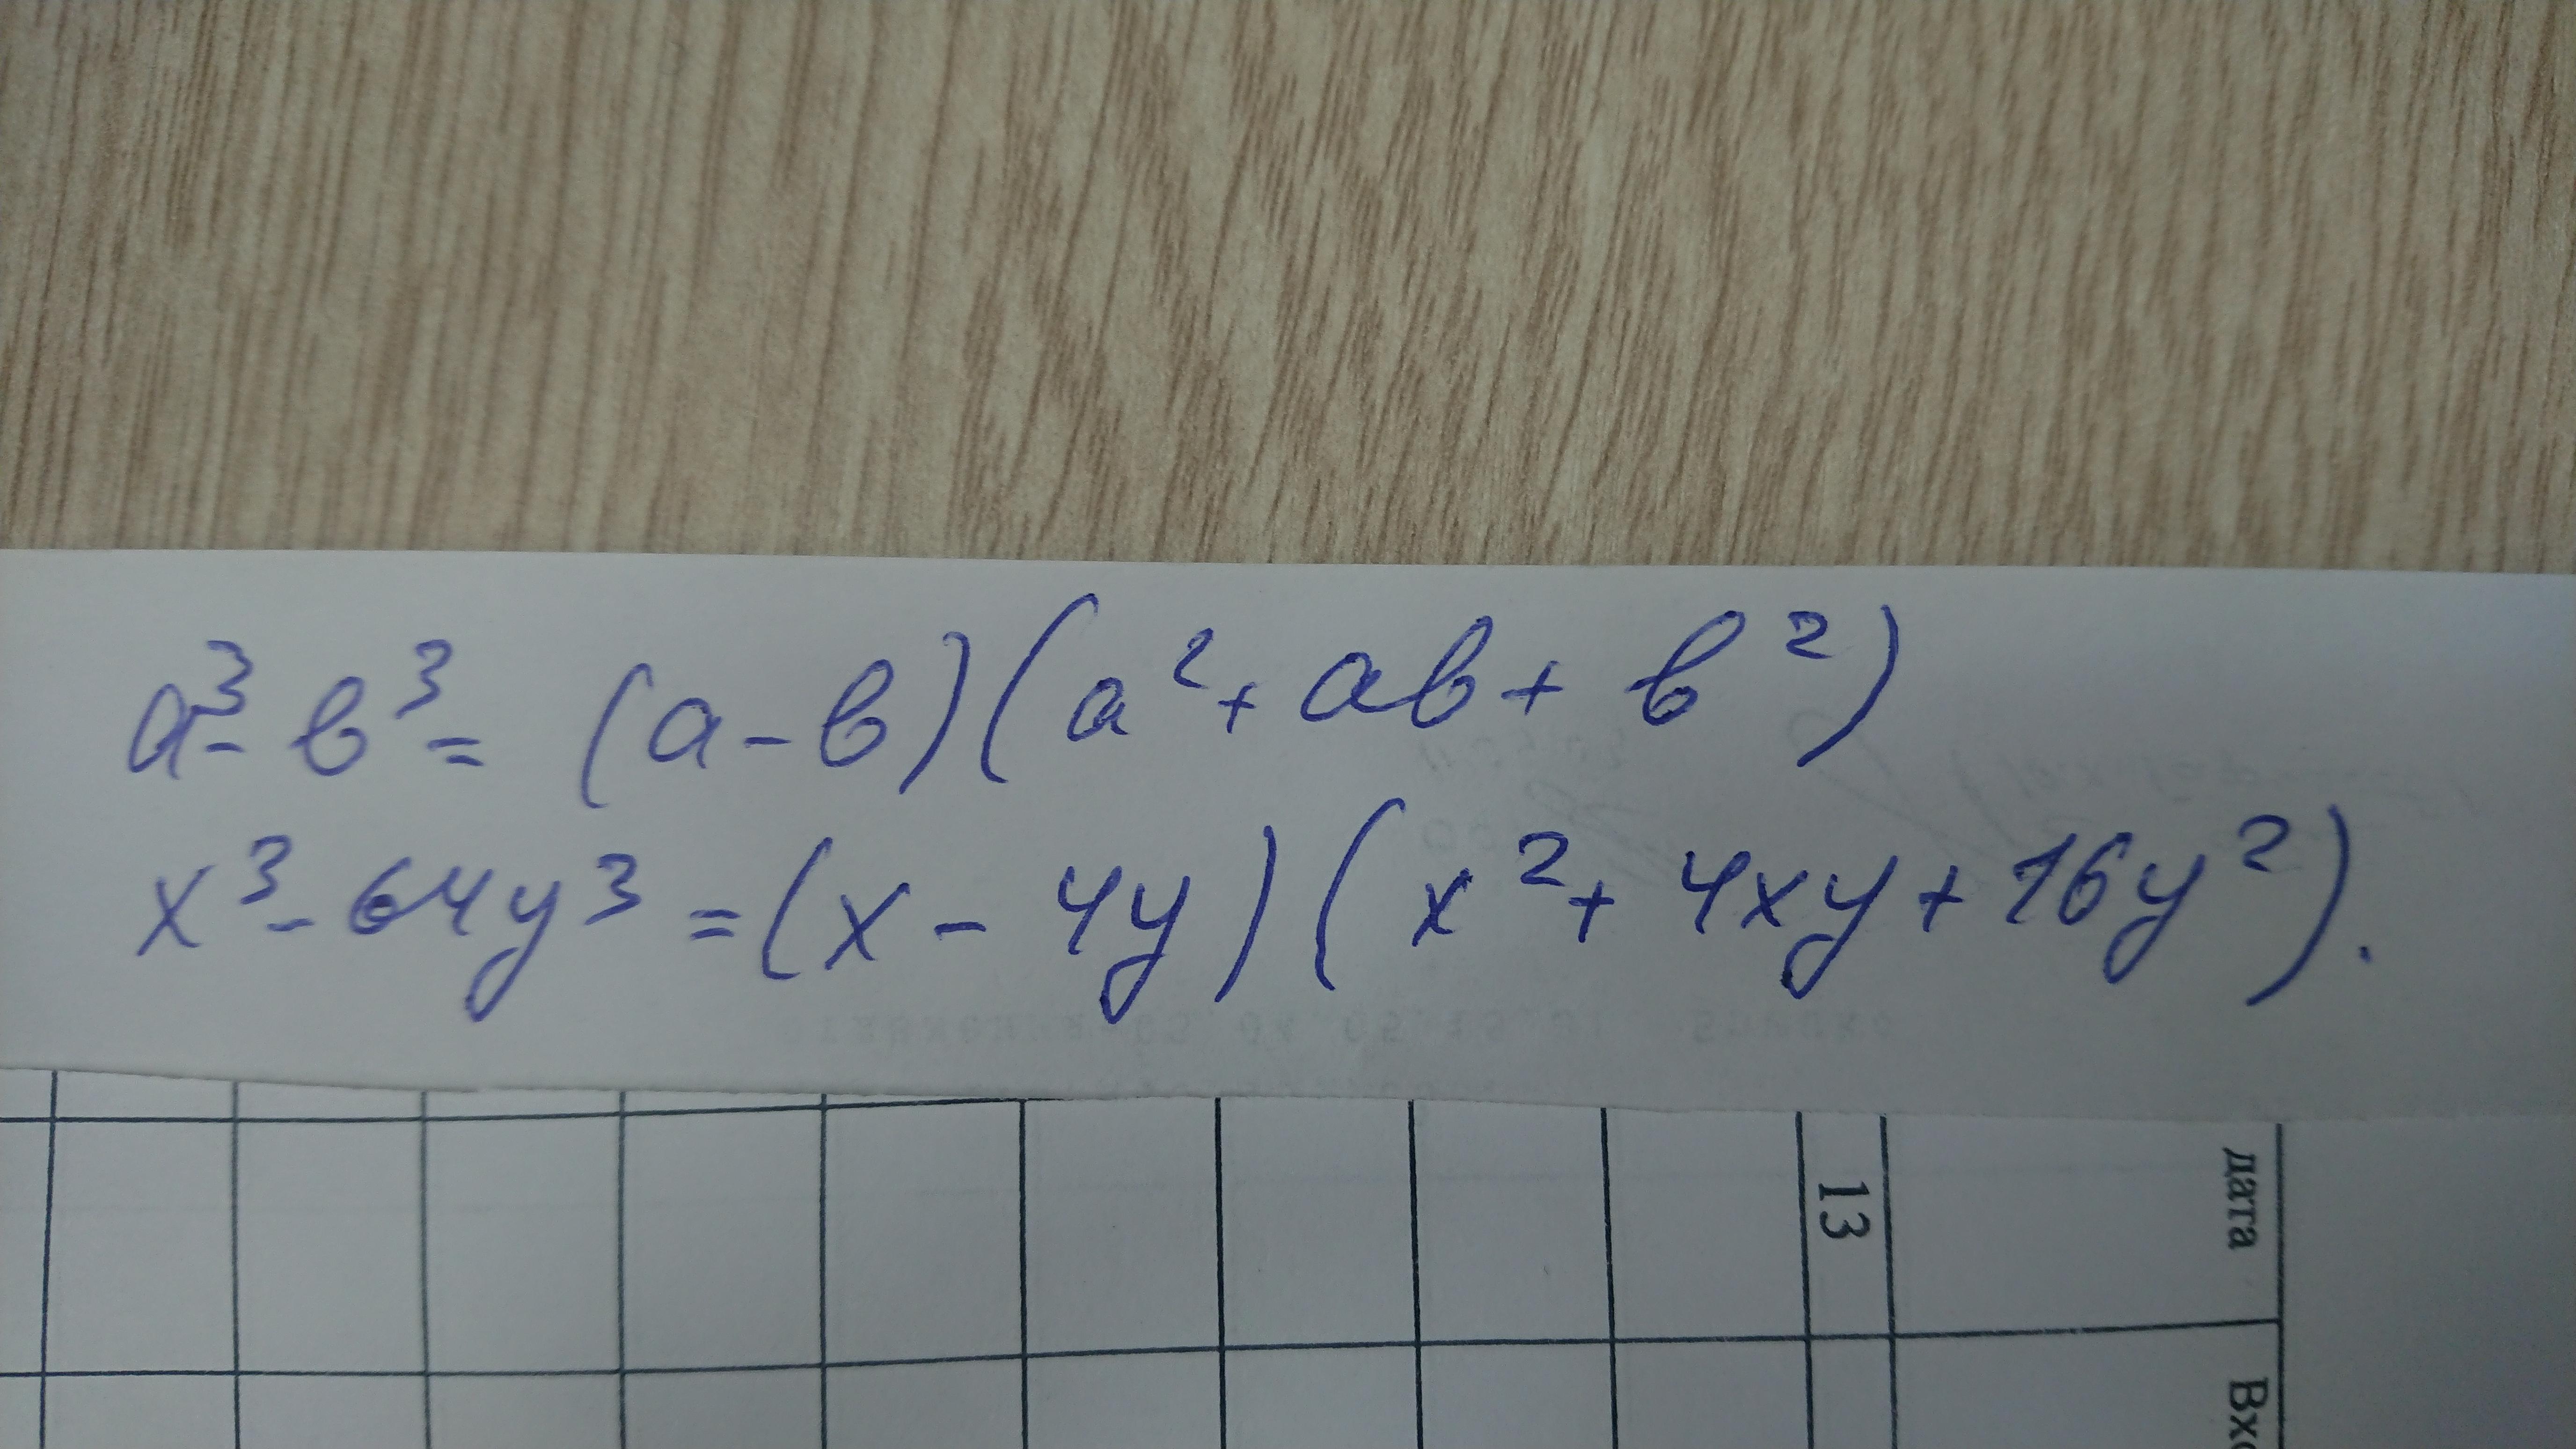 a³ - в³ = (a - в)(a² + aв + в²)
x³ - 64y³ = (x - 4y)(x² + 4xy + 16y²).
13
дата
Вхо